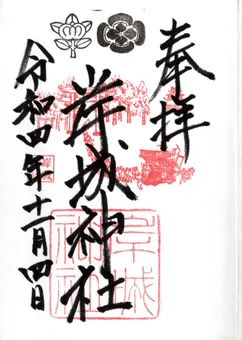 奉拝
岸城神社
令和四年十一月四日
岸城神社